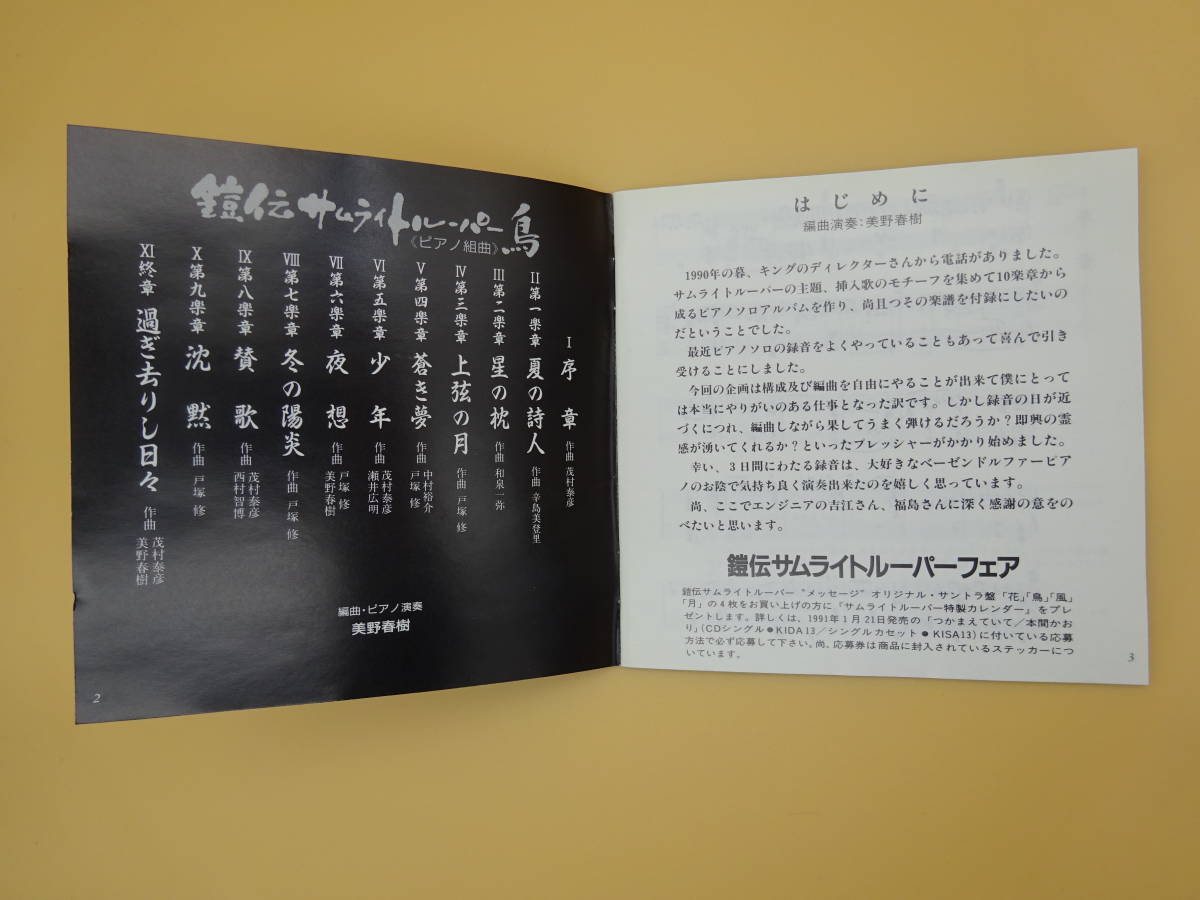 鎧伝サムライトルーパー鳥
《ピアノ組曲》
I 序章 作曲 茂村泰彦
II 第一楽章 夏の詩人 作曲 辛島美登里
III 第二楽章 星の枕 作曲 和泉一弥
IV 第三楽章 上弦の月 作曲 戸塚 修
V 第四楽章 蒼き夢 作曲 中村裕介 戸塚 修
VI 第五楽章 少年 作曲 茂村泰彦 瀬井広明
VII 第六楽章 夜想 作曲 戸塚 修 美野春樹
VIII 第七楽章 冬の陽炎 作曲 戸塚 修
IX 第八楽章 賛歌 作曲 茂村泰彦 西村智博
X 第九楽章 沈黙 作曲 戸塚 修
XI 終章 過ぎ去りし日々 作曲 茂村泰彦 美野春樹
編曲・ピアノ演奏
美野春樹
2
はじめに
編曲演奏:美野春樹
1990年の暮、キングのディレクターさんから電話がありました。
サムライトルーパーの主題、挿入歌のモチーフを集めて10楽章から
成るピアノソロアルバムを作り、尚且つその楽譜を付録にしたいの
だということでした。
最近ピアノソロの録音をよくやっていることもあって喜んで引き
受けることにしました。
今回の企画は構成及び編曲を自由にやることが出来て僕にとって
は本当にやりがいのある仕事となった訳です。しかし録音の日が近
づくにつれ、編曲しながら果してうまく弾けるだろうか?即興の霊
感が湧いてくれるか?といったプレッシャーがかかり始めました。
幸い、3日間にわたる録音は、大好きなベーゼンドルファーピア
ノのお陰で気持ち良く演奏出来たのを嬉しく思っています。
尚、ここでエンジニアの吉江さん、福島さんに深く感謝の意をの
べたいと思います。
鎧伝サムライトルーパーフェア
鎧伝サムライトルーパー"メッセージ"オリジナル・サントラ盤「花」「鳥」「風」
「月」の4枚をお買い上げの方に『サムライトルーパー特製カレンダー』をプレ
ゼントします。詳しくは、1991年1月21日発売の「つかまえていて/本間かお
り」(CDシングル●KIDA13/シングルカセット●KISA13)に付いている応募
方法で必ず応募して下さい。尚、応募券は商品に封入されているステッカーにつ
いています。
3